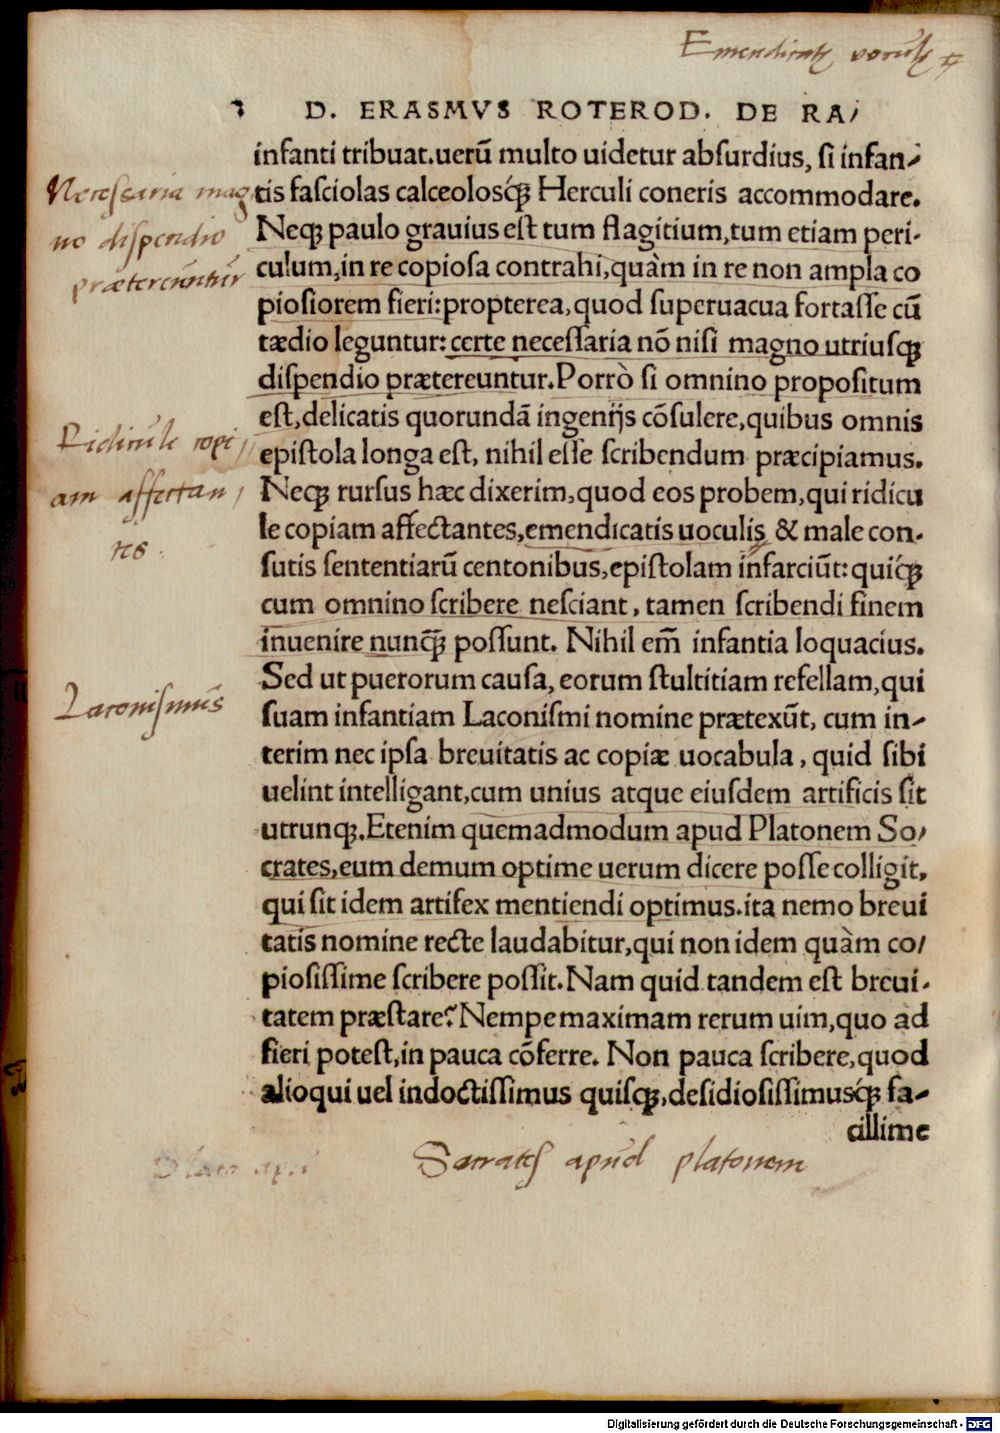 Emendicatę vocułę
3 D. ERASMVS ROTEROD. DE RA/
infanti tribuat.uerũ multo uidetur absurdius, si infan-
tis fasciolas calceolosq́ꝫ Herculi coneris accommodare.
Neqꝫ paulo grauius est tum flagitium,tum etiam peri-
culum,in re copiosa contrahi,quàm in re non ampla co
piosiorem fieri:propterea,quod superuacua fortasse cũ
tædio leguntur:certe necessaria nõ nisi magno utriusqꝫ
dispendio prætereuntur.Porrò si omnino propositum
est,delicatis quorundã ingenijs cõsulere,quibus omnis
epistola longa est, nihil esse scribendum præcipiamus.
Neqꝫ rursus hæc dixerim,quod eos probem,qui ridicu
le copiam affectantes,emendicatis uoculis & male con-
sutis sententiarũ centonibus,epistolam infarciũt:quiq́ꝫ
cum omnino scribere nesciant, tamen scribendi finem
inuenire nunq̃ꝫ possunt. Nihil em̃ infantia loquacius.
Sed ut puerorum causa, eorum stultitiam refellam,qui
suam infantiam Laconismi nomine prætexũt, cum in-
terim nec ipsa breuitatis ac copiæ uocabula, quid sibi
uelint intelligant,cum unius atque eiusdem artificis sit
utrunqꝫ.Etenim quemadmodum apud Platonem So/
crates,eum demum optime uerum dicere posse colligit,
qui sit idem artifex mentiendi optimus.ita nemo breui
tatis nomine recte laudabitur,qui non idem quàm co/
piosissime scribere possit.Nam quid tandem est breui-
tatem præstare? Nempe maximam rerum uim,quo ad
fieri potest,in pauca cõferre. Non pauca scribere,quod
alioqui uel indoctissimus quisqꝫ,desidiosissimusq́ꝫ fa-
cillime
Necessaria mag
no dispendio
prætereuntur
Ridicule copi
am affectan/
tes
Laconismus
Socrates apud platonem
Digitalisierung gefördert durch die Deutsche Forschungsgemeinschaft - DFG